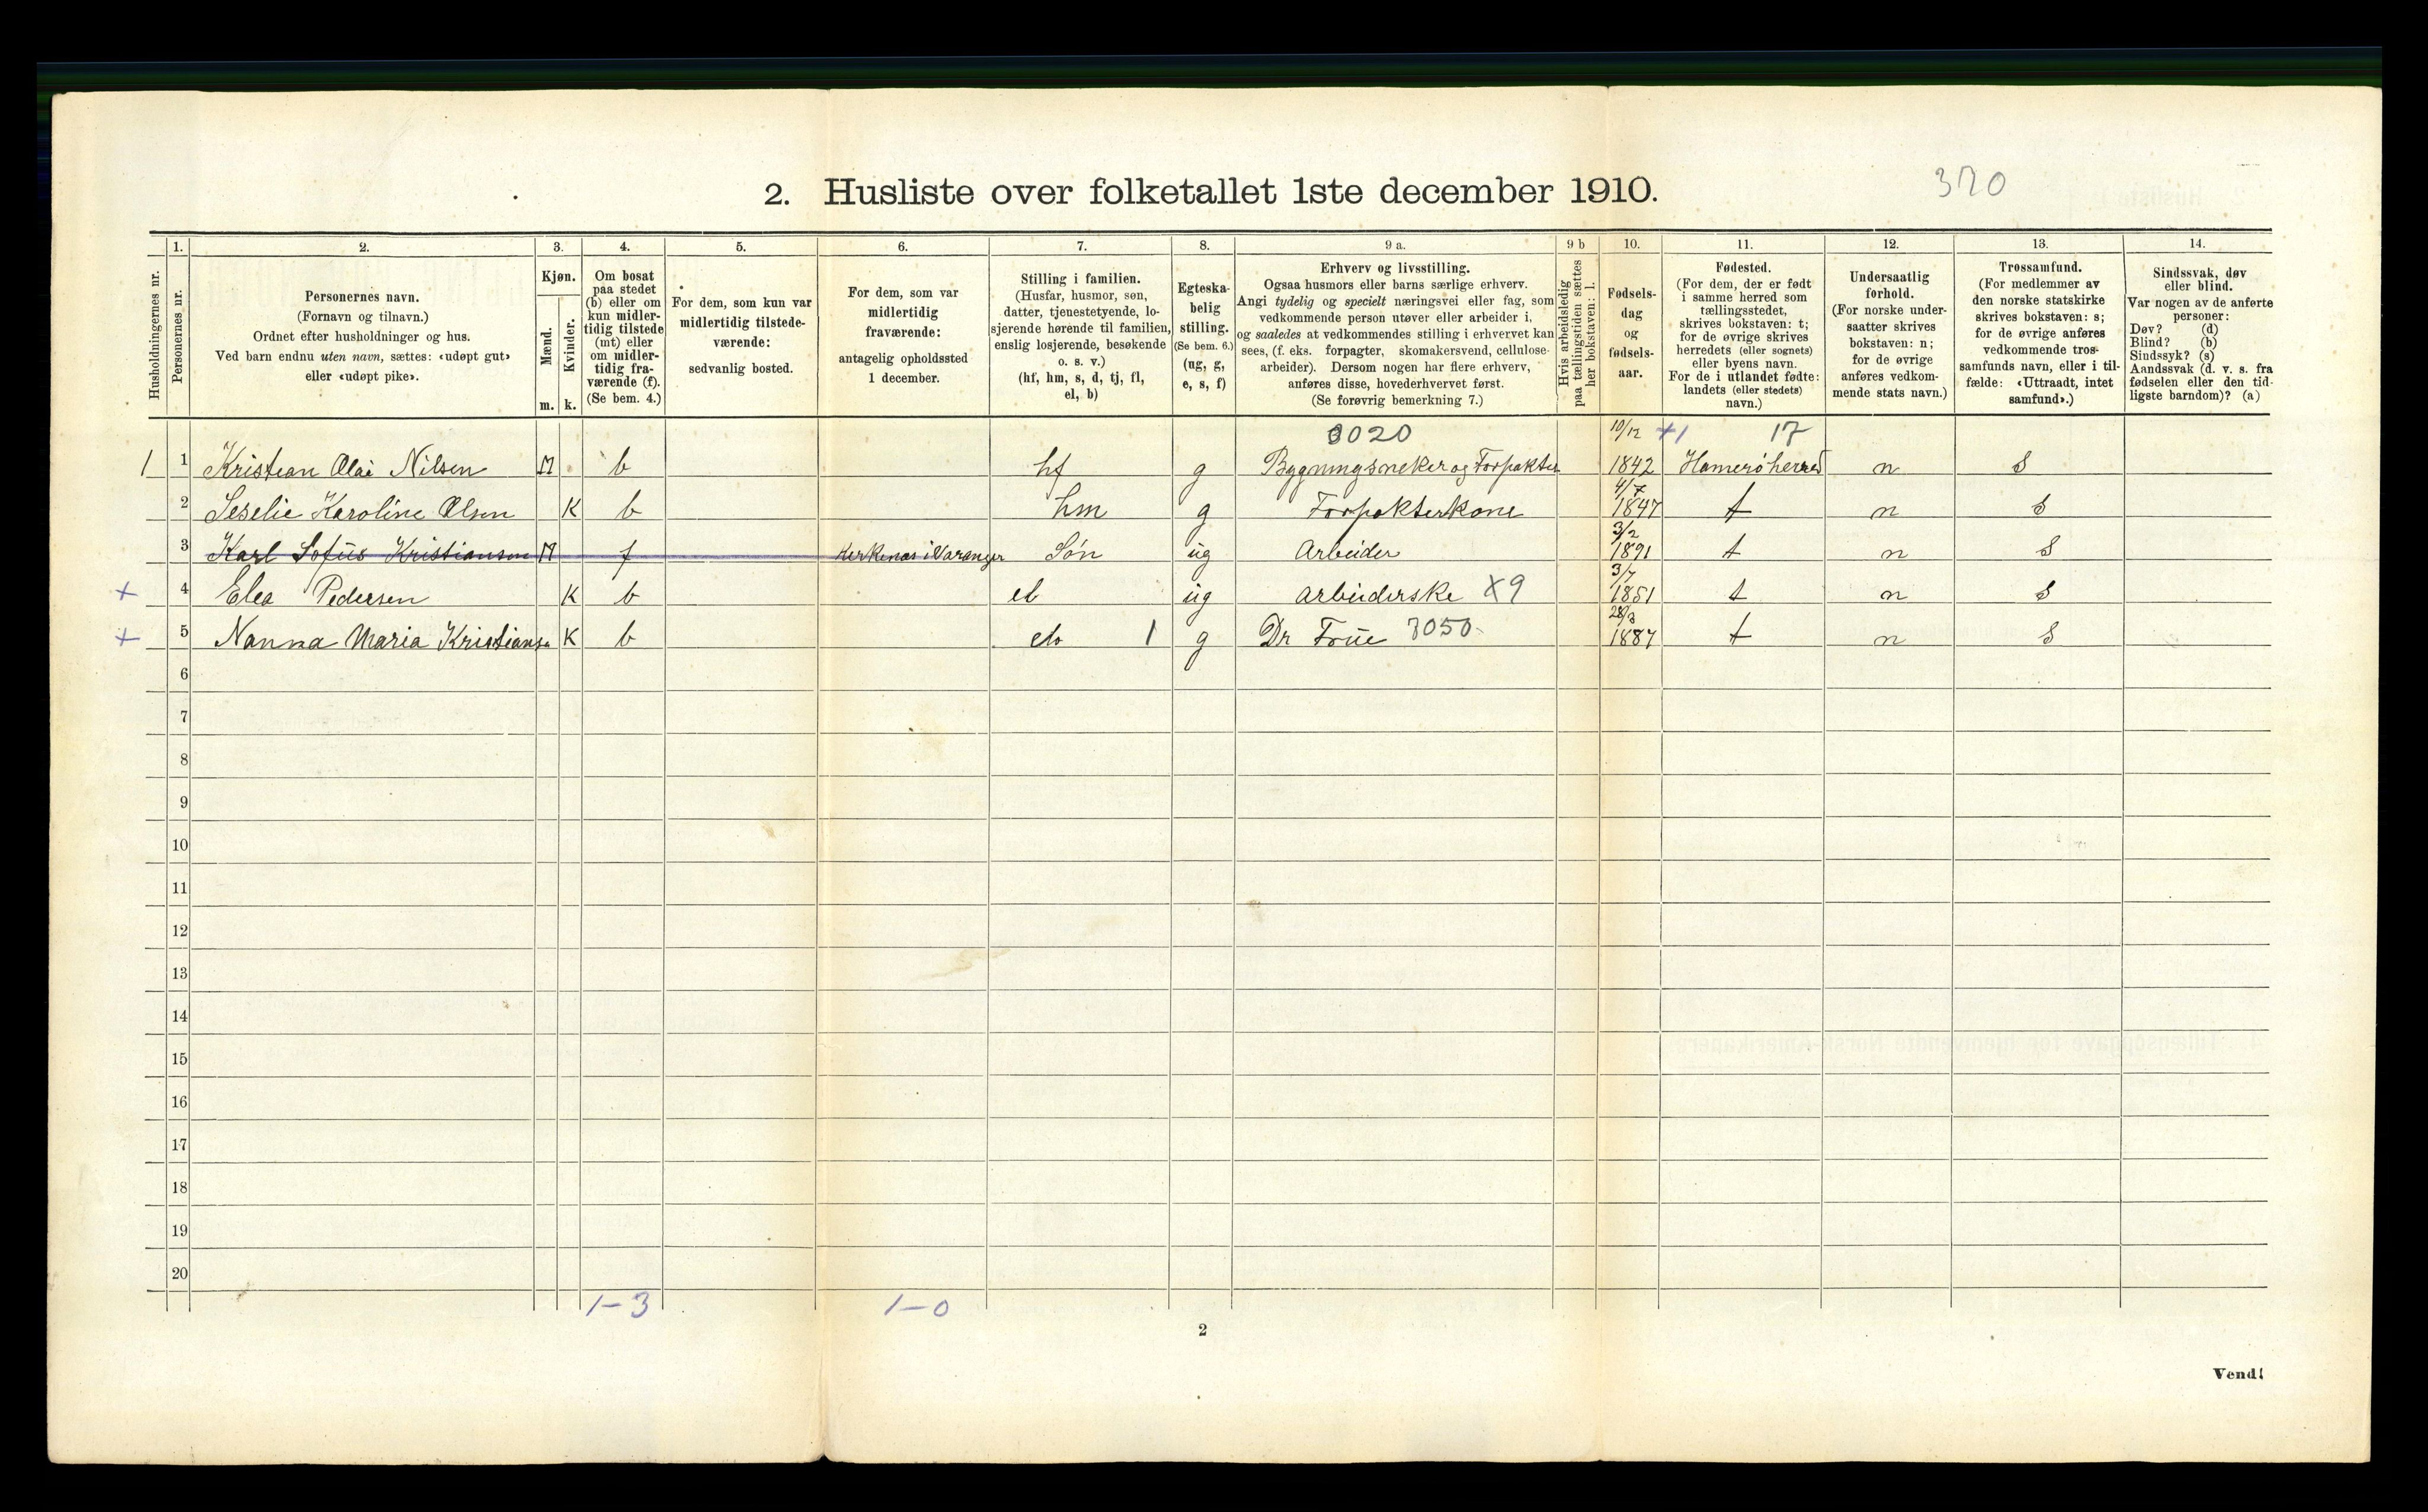 370
2. Husliste over folketallet 1ste december 1910.
Husholdningernes nr.
1.
Personernes nr.
2.
Personernes navn.
(Fornavn og tilnavn.)
Ordnet efter husholdninger og hus.
Ved barn endnu uten navn, sættes: «udøpt gut»
eller «udøpt pike».
3.
Kjøn.
Mænd.
m.
Kvinder.
k.
4.
Om bosat
paa stedet
(b) eller om
kun midler-
tidig tilstede
(mt) eller
om midler-
tidig fra-
værende (f).
(Se bem. 4.)
5.
For dem, som kun var
midlertidig tilstede-
værende:
sedvanlig bosted.
6.
For dem, som var
midlertidig
fraværende:
antagelig opholdssted
1 december.
7.
Stilling i familien.
(Husfar, husmor, søn,
datter, tjenestetyende, lo-
sjerende hørende til familien,
enslig losjerende, besøkende
o. s. v.)
(hf, hm, s, d, tj, fl,
el, b)
8.
Egteska-
belig
stilling.
(Se bem. 6.)
(ug, g,
e, s, f)
9 a.
Erhverv og livsstilling.
Ogsaa husmors eller barns særlige erhverv.
Angi tydelig og specielt næringsvei eller fag, som
vedkommende person utøver eller arbeider i,
og saaledes at vedkommendes stilling i erhvervet kan
sees, (f. eks. forpagter, skomakersvend, cellulose-
arbeider). Dersom nogen har flere erhverv,
anføres disse, hovederhvervet først.
(Se forøvrig bemerkning 7.)
9 b
Hvis arbeidsledig
paa tællingstiden sættes
her bokstaven: l.
10.
Fødsels-
dag
og
fødsels-
aar.
11.
Fødested.
(For dem, der er født
i samme herred som
tællingsstedet,
skrives bokstaven: t;
for de øvrige skrives
herredets (eller sognets)
eller byens navn.
For de i utlandet fødte:
landets (eller stedets)
navn.)
12.
Undersaatlig
forhold.
(For norske under-
saatter skrives
bokstaven: n;
for de øvrige
anføres vedkom-
mende stats navn.)
13.
Trossamfund.
(For medlemmer av
den norske statskirke
skrives bokstaven: s;
for de øvrige anføres
vedkommende tros-
samfunds navn, eller i til-
fælde: «Uttraadt, intet
samfund».)
14.
Sindssvak, døv
eller blind.
Var nogen av de anførte
personer:
Døv? (d)
Blind? (b)
Sindssyk? (s)
Aandssvak (d. v. s. fra
fødselen eller den tid-
ligste barndom)? (a)
3020 10/12 +1 17
1 1 Kristian Olai Nilsen M b hf g Bygningsneker og Forpakter 1842 Hamerö herred n S
4/7
2 Seselie Karoline Olsen K b hm g Forpakterkone 1847 t n S
3/2
3 Karl Sofüs Kristiansen M f Kerkenæs i Varanger Sön üg Arbeider 1891 t n S
3/7
+ 4 Elea Pedersen K b el üg arbeiderske X9 1851 t n S
28/3
+ 5 Nanna Maria Kristiansen K b do 1 g Dr Früe 3050 1887 t n S
6
7
8
9
10
11
12
13
14
15
16
17
18
19
20
1-3 1-0
2
Vend!